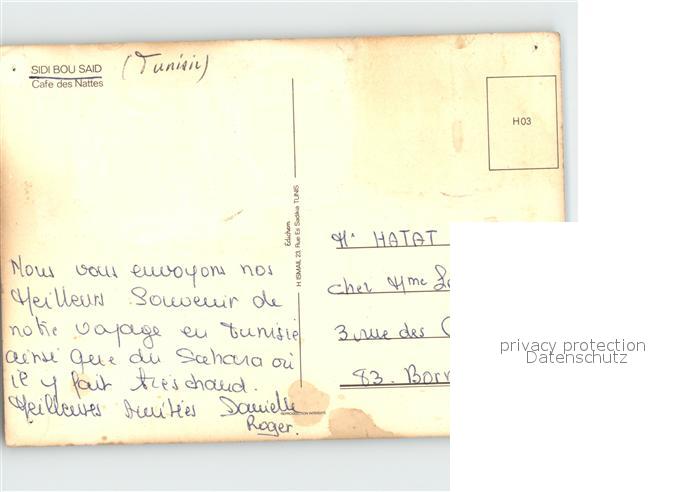 SIDI BOU SAID (Tunisie)
Cafe des Nattes
H03
Edichem
H ISMAIL 23, Rue Es Sadikia TUNIS
Nous vous envoyons nos
Meilleurs Souvenir de
notre voyage en Tunisie
ainsi que du Sahara où
il y fait très chaud.
Meilleures Amitiés Danielle
Roger.
REPRODUCTION INTERDITE
Mr HATAT
chez Mme
3 rue des
83. Borr
privacy protection
Datenschutz